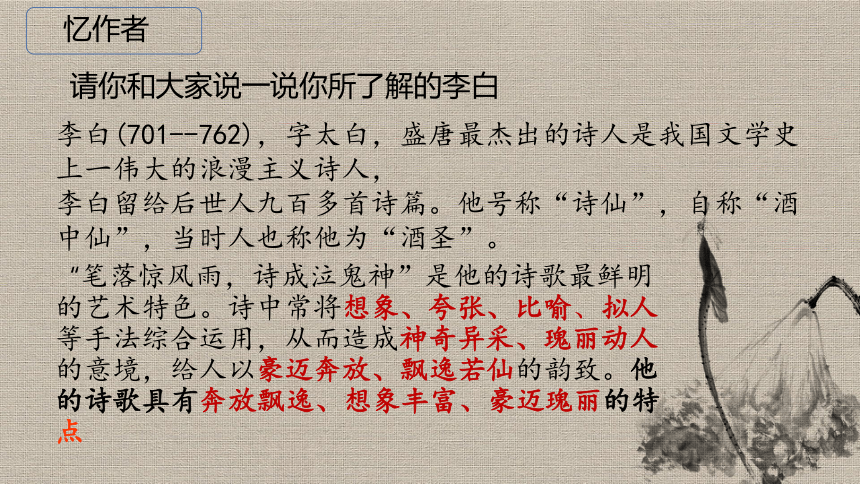 忆作者
请你和大家说一说你所了解的李白
李白(701--762)，字太白，盛唐最杰出的诗人是我国文学史
上一伟大的浪漫主义诗人，
李白留给后世人九百多首诗篇。他号称“诗仙”，自称“酒
中仙”，当时人也称他为“酒圣”。
“笔落惊风雨，诗成泣鬼神”是他的诗歌最鲜明
的艺术特色。诗中常将想象、夸张、比喻、拟人
等手法综合运用，从而造成神奇异采、瑰丽动人
的意境，给人以豪迈奔放、飘逸若仙的韵致。他
的诗歌具有奔放飘逸、想象丰富、豪迈瑰丽的特
点